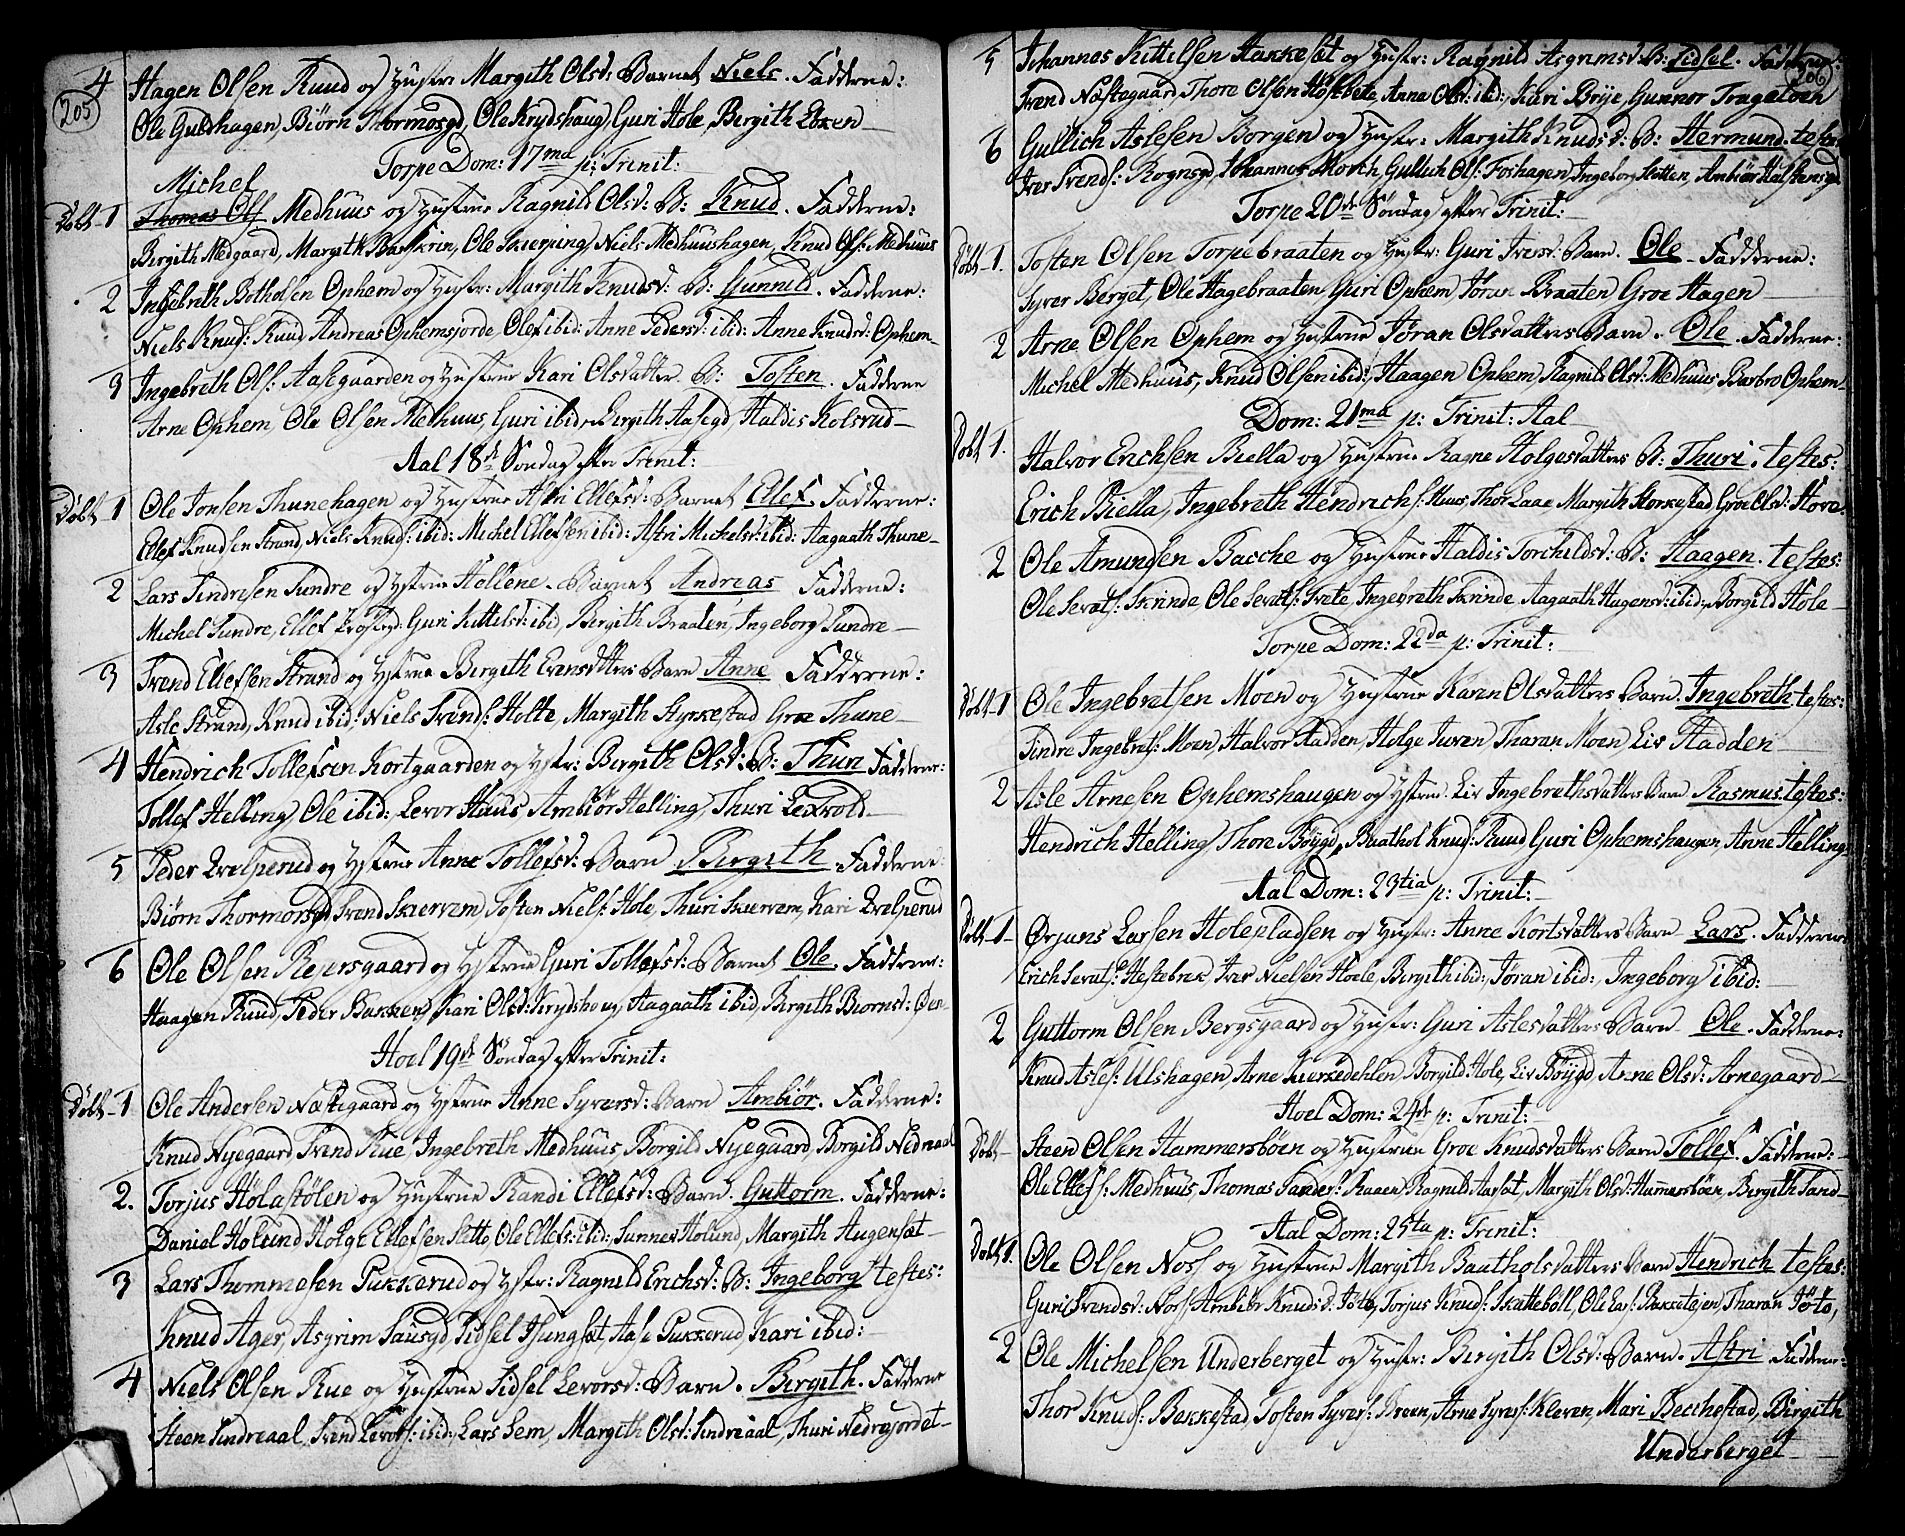 205
4 Hagen Olsen Ruud og Hustru Margith Olsd: Barnet Niels. Fadderne:
Ole Guldhagen, Biørn Thormosgd, Ole Krydshaug, Guri Hole, Bergith
Torpe Dom: 17ma p: Trinit:
Michel
Døbt 1 Thomas Ols Medhuus og Hustrue Ragnild Olsd: B: Knud. Fadderne:
Bergith Medgaard, Margith, Ole Skierping, Niels Medhuushagen, Knud Ols: Medhuus
2 Ingebreth Botholsen Ophem og Hustr: Margith Knudsd: B: Gunnild. Fadderne:
Niels Knuds: Ruud, Andreas Ophemsjorde, Ole ibid: Anne Pedersd: ibid: Anne Knudsd: Ophem
9 Ingebreth Ols: Aasegaarden og Hustrue Kari Olsdatter B: Tosten. Fadderne
Arne Ophem, Ole Olsen Medhuus, Guri ibid, Bergith Aasegd, Haldis Kolsrud
Aal 18de Søndag efter Trinit:
Døbt 1 Ole Jonsen Thunehagen og Hustrue Astri Ellefsd: Barnet Ellef. Fadderne:
Ellef Knudsen Strand, Niels Knuds: ibid: Michel Ellefsen ibid: Astri Michelsd: ibid: Aagaath Thune
2 Lars Sindresen Sundre og Hstrue Hellene. Barnet Andreas Fadderne:
Michel Sundre, Ellef Prostgd: Guri Kittilsd: ibid, Birgith Braaten, Ingeborg Sundre
3 Svend Ellefsen Strand og Hstrue Bergith Evensdatters Barn Anne Fadderne:
Asle Strand, Knud ibid: Niels Svends: Holte, Margith Styrkestad Groe Thune
4 Hendrich Tollefsen Kortgaarden og Hstr: Bergith Olsd: B: Thuri Fadderne:
Tollef Helling, Ole ibid: Levor Huus Ambiør Helling, Thuri Lexvold
5 Peder Qvelperud og Hstrue Anne Tollefsd: Barn Bergith Fadderne
Biørn Thormorsgd, Svend Skiervem, Tosten Niels: Hole, Thuri Skiervem, Kari Qvelperud
6 Ole Olsen Reiersgaard og Hustrue Guri Tollefsd: Barnet Ole. Fadderne:
Haagen Ruud, Peder Bakken, Kari Olsd: Krydshoug, Aagaath ibid, Bergith Biornsd:
Hoel 19de Søndag efter Trinit:
Døbt 1 Ole Andersen Næstegaard og Hstrue Anne Syversd: Barn Ambiør. Fadderne:
Knud Nyegaard, Svend Rue, Ingebreth Medhuus, Borgild Nyegaard, Borgild Nedreaal
2. Torjus Hølastølen og Hustrue Randi Ellefsd: Barn. Guttorm. Fadderne:
Daniel Hølund, Holge Ellefsen Sætto, Ole Ellefs: ibid: Gunner Hølund, Margith Haugensæt
3 Lars Thommesen Pukkerud og Hstr: Ragnild Erichsd: B: Ingeborg testes:
Knud Ager, Asgrim Sausgd, Sidsel Tsungsæt, Aase Pukkerud, Kari ibid:
4 Niels Olsen Rue og Hustrue Sidsel Levorsd: Barn. Bergith. Fadderne
Steen Sundreaal, Svend Levors: ibid:, Lars Sem, Margith Olsd: Sundreaal, Thuri Nedregjordet
206
5 Johannes Kittilsen Hakkesæt og Hustr: Ragnild Asgrimsd: B: Sidsel. Fadderne:
Svend Næstegaard, Thore Olsen Hofsbete, Anne Olsd: ibid:, Kari Brye, Gunnor Trageton
6 Gullich Aslesen Borgen og Hustr: Margith Knudsd: B: Hermund. testes
Iver Svends: Rognsgd, Johannes Morch, Gullich Ols: Foshagen, Ingeborg Slitten, Ambiør Halstensgd
Torpe 20de Søndag efter Trinit:
Døbt 1. Tosten Olsen Torpebraaten og Hustr: Guri Iversd: Barn. Ole Fadderne:
Syver Berget, Ole Hagebraaten, Guri Ophem, Jøran Braaten Groe Hagen
2 Arne Olsen Ophem og Hustrue Jøran Olsdatters Barn. Ole. Fadderne:
Michel Medhuus, Knud Olsen ibid:, Haagen Ophem, Ragnild Olsd: Medhuus, Barbro Ophem
Dom: 21ma p: Trinit: Aal
Døbt 1. Halvor Erichsen Biella og Hustrue Ragne Holgesdatters B: Thuri. testes:
Erich Biella, Ingebreth Hendrichs: Huus, Thor Laae Margith Storkestad Groe Olsd: Hove
2 Ole Amundsen Bacche og Hustrue Haldis Torchildsd: B: Haagen. testes:
Ole Sevats: Skrinde, Ole Sevats: Svete, Ingebreth Skrinde Aagaath Hagensd: ibid:, Borgild Hole
Torpe Dom: 22da p: Trinit:
Døbt 1 Ole Ingebretsen Moen og Hustrue Karen Olsdatters Barn. Ingebreth testes:
Sindre Ingebrets: Moen, Halvor Hadden, Holge Juven Tharan Moen Liv Hadden
2 Asle Arnesen Ophemshaugen og Hstrue Liv Ingebrethsdatters Barn Rasmus. testes:
Hendrich Helling, Thore Bøygd, Baathol Knuds: Ruud, Guri Ophemshaugen, Anne Helling
Aal Dom: 23tia p: Trinit:
Døbt 1 Ørjans Larsen Holepladsen og Hustr: Anne Kortsdatters Barn Lars. Fadderne
Erich Sevats: Hestebrek, Iver Nielsen Hoele, Bergith ibid:, Jøran ibid:, Ingeborg ibid:
2 Guttorm Olsen Bergsgaard og Hustr: Guri Aslesdatters Barn Ole. Fadderne:
Knud Asles: Ulshagen, Arne Kirkedehlen, Borgild Hole, Liv Bøygd, Anne Olsd: Arnegaard
Hoel Dom: 24de p: Trinit:
Døbt Steen Olsen Hammersbøen og Hustrue Groe Knudsdatters Barn Tollef. Fadderne:
Ole Ellefs: Medhuus, Thomas Sanders: Raaen, Ragnild Aarsæt, Margith Olsd: Hammersbøen, Bergith Sand
Aal Dom: 25ta p: Trinit:
Døbt 1. Ole Olsen Nos og Hustrue Margith Baatholsdatters Barn Hendrich testes:
Guri Svendsd: Nos, Ambiør Knudsd: Tøto, Torjus Knuds: Skattebøll, Ole Lars: Bakketejen, Tharan Tøto,
2 Ole Michelsen Underberget og Hustr: Bergith Olsd: Barn. Astri Fadderne:
Thor Knuds: Bakkestad, Tosten Syvers: Breen, Arne Syvers: Kleven, Mari Becchestad, Birgith
Underberget